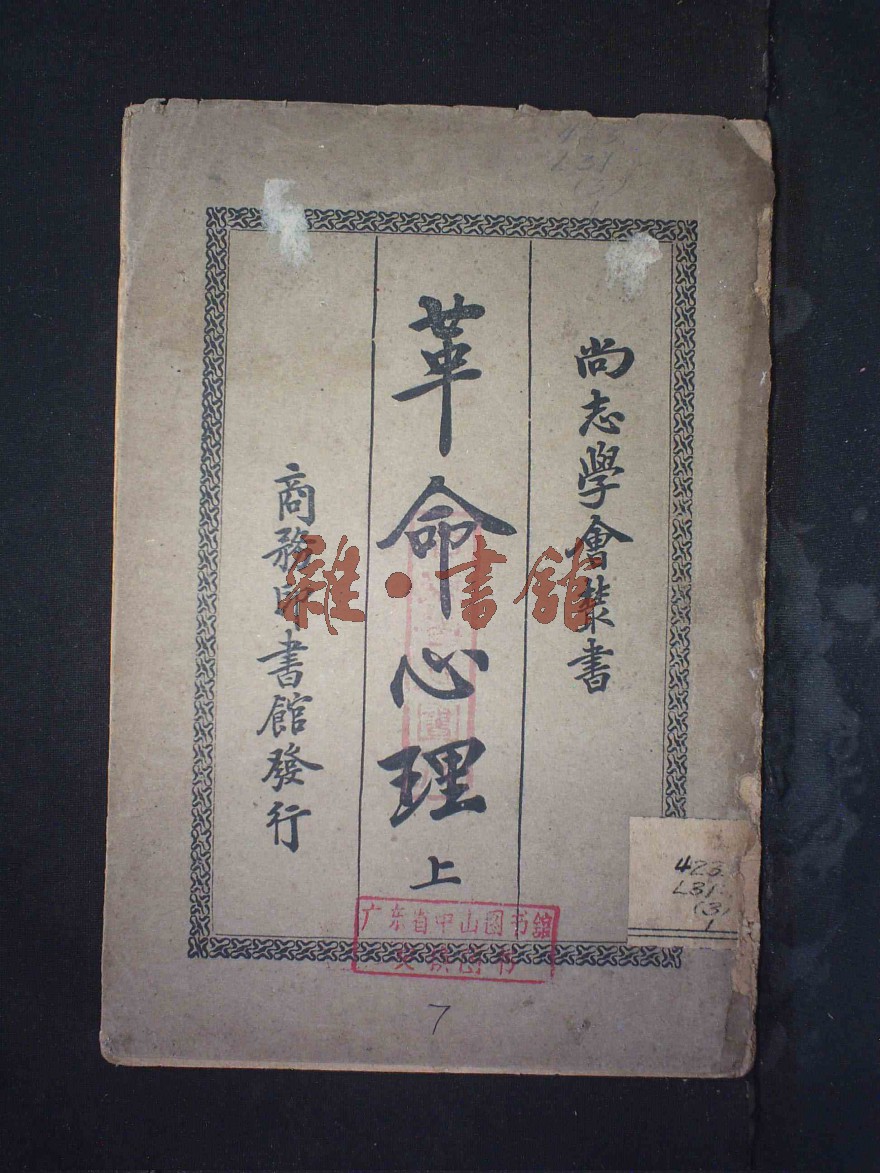 尚志學會叢書
革命心理
上
商務印書館發行
雜·書館
广东省中山图书馆
423
L31
(3)
1
7